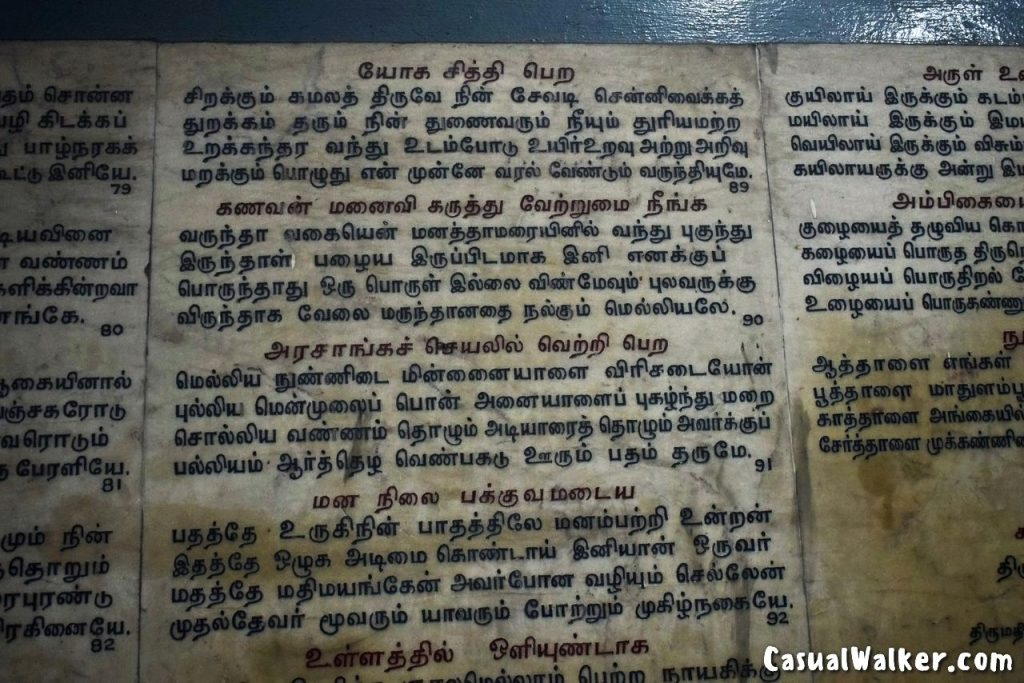 தம் சொன்ன
கிடக்கப்
பாழ்நரகக்
இனியே.
79
வண்ணம்
80
வரொடும்
பேரளியே.
81
நின்
82
யோக சித்தி பெற
சிறக்கும் கமலத் திருவே நின் சேவடி சென்னிவைக்கத்
துறக்கம் தரும் நின் துணைவரும் நீயும் துரியமற்ற
உறக்கந்தர வந்து உடம்போடு உயிர்உறவு அற்று அறிவு
மறக்கும் பொழுது என் முன்னே வரல் வேண்டும் வருந்தியுமே.
89
கணவன் மனைவி கருத்து வேற்றுமை நீங்க
வருந்தா வகையென் மனத்தாமரையினில் வந்து புகுந்து
இருந்தாள் பழைய இருப்பிடமாக இனி எனக்குப்
பொருந்தாது ஒரு பொருள் இல்லை விண்மேவும் புலவருக்கு
விருந்தாக வேலை மருந்தானதை நல்கும் மெல்லியலே.
90
அரசாங்கச் செயலில் வெற்றி பெற
மெல்லிய நுண்ணிடை மின்னையாளை விரிசடையோன்
புல்லிய மென்முலைப் பொன் அனையாளைப் புகழ்ந்து மறை
சொல்லிய வண்ணம் தொழும் அடியாரைத் தொழும் அவர்க்குப்
பல்லியம் ஆர்த்தெழ வெண்பகடு ஊரும் பதம் தருமே.
91
மன நிலை பக்குவமடைய
பதத்தே உருகிநின் பாதத்திலே மனம்பற்றி உன்றன்
இதத்தே ஒழுக அடிமை கொண்டாய் இனியான் ஒருவர்
மதத்தே மதிமயங்கேன் அவர்போன வழியும் செல்லேன்
முதல்தேவர் மூவரும் யாவரும் போற்றும் முகிழ்நகையே.
92
உள்ளத்தில் ஒளியுண்டாக
பெற்ற நாயகிக்கு
அருள்
குயிலாய் இருக்கும்
மயிலாய் இருக்கும்
வெயிலாய் இருக்கும்
கயிலாயருக்கு அன்று
குழையைத் தழுவிய
கழையைப் பொருத
விழையப் பொருதிறல்
உழையைப்
ஆத்தாளை எங்கள்
பூத்தாளை
காத்தாளை
சேர்த்தாளை
CasualWalker.com